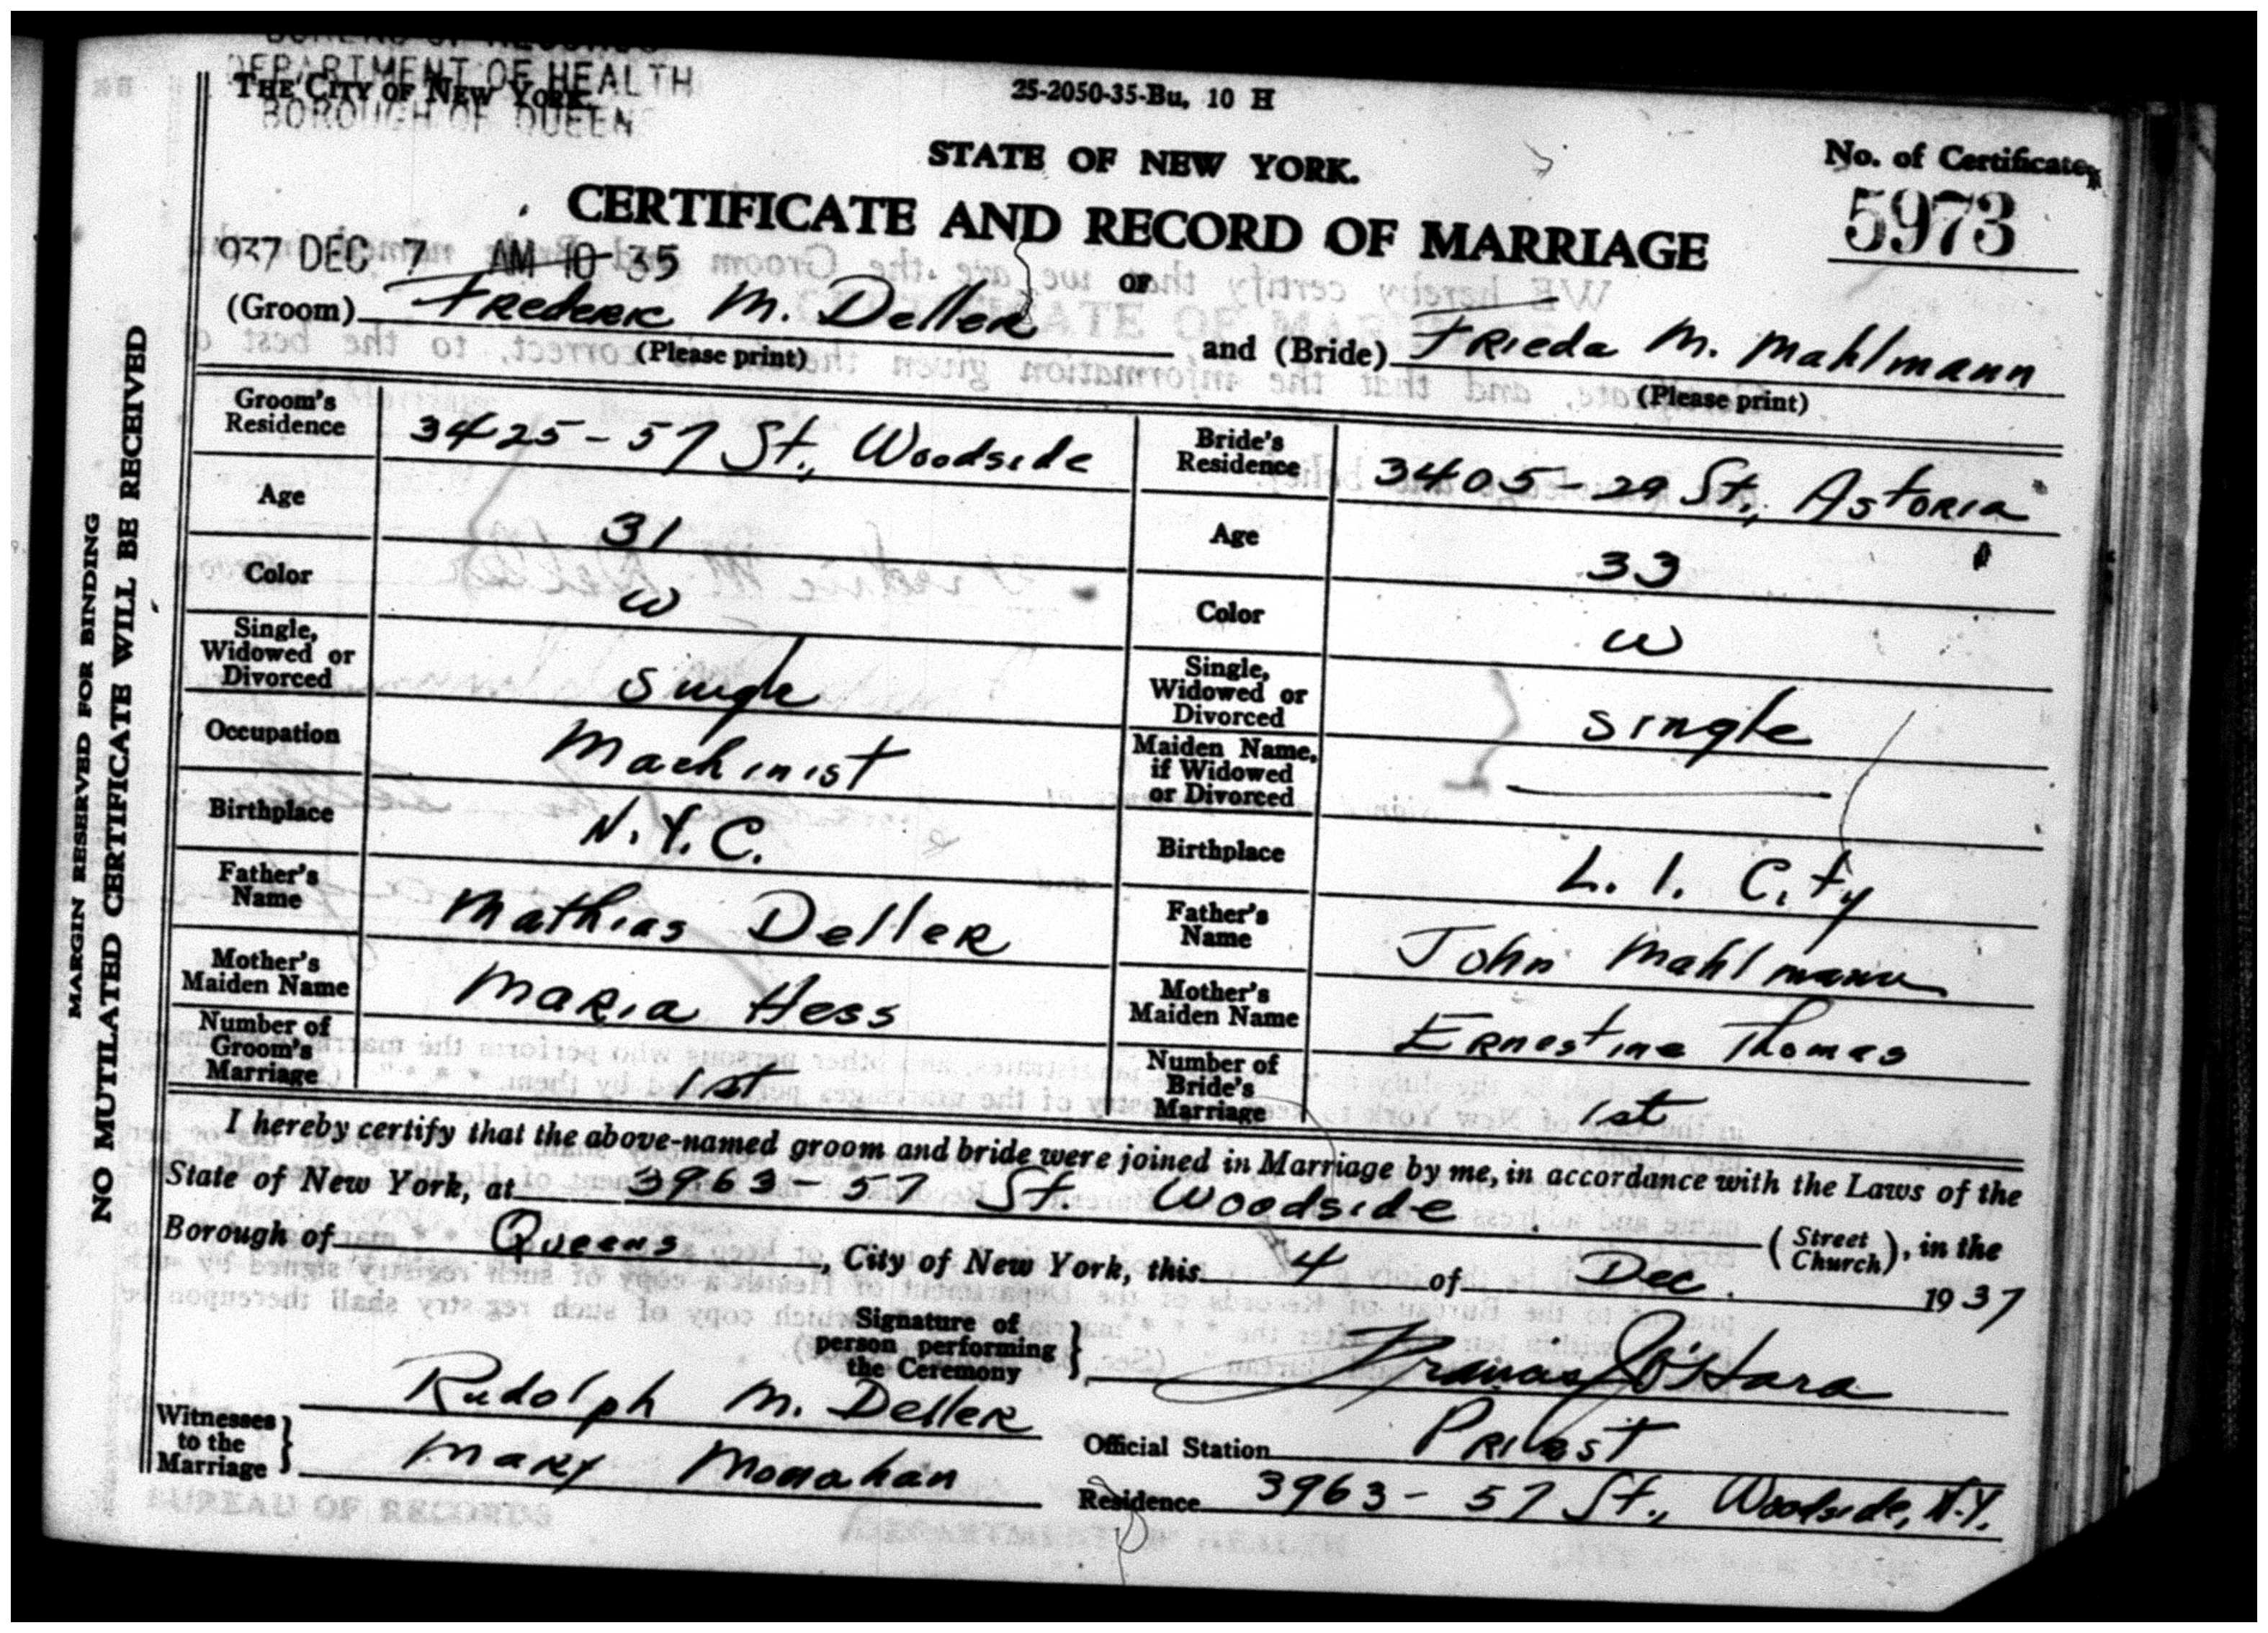 DEPARTMENT OF HEALTH
THE CITY OF NEW YORK.
BOROUGH OF QUEENS
25-2050-35-Bu, 10 H
STATE OF NEW YORK.
No. of Certificate
5973
CERTIFICATE AND RECORD OF MARRIAGE
937 DEC 7 AM 10 35
OF
(Groom) Frederic M. Deller and (Bride) Frieda M. Mahlmann
(Please print) (Please print)
Groom's Residence 3425-57 St., Woodside
Bride's Residence 3405-29 St., Astoria
Age 31
Age 33
Color W
Color W
Single, Widowed or Divorced Single
Single, Widowed or Divorced Single
Occupation Machinist
Maiden Name, if Widowed or Divorced
Birthplace N.Y.C.
Birthplace L. I. City
Father's Name Mathias Deller
Father's Name John Mahlmann
Mother's Maiden Name Maria Hess
Mother's Maiden Name Ernestine Thomas
Number of Groom's Marriage 1st
Number of Bride's Marriage 1st
I hereby certify that the above-named groom and bride were joined in Marriage by me, in accordance with the Laws of the
State of New York, at 3963-57 St. Woodside (Street Church), in the
Borough of Queens, City of New York, this 4 of Dec. 1937
Signature of person performing the Ceremony } Francis J. O'Hara
Witnesses to the Marriage } Rudolph M. Deller
Mary Monahan
Official Station Priest
Residence 3963-57 St., Woodside, N.Y.
MARGIN RESERVED FOR BINDING
NO MUTILATED CERTIFICATE WILL BE RECEIVED
BUREAU OF RECORDS